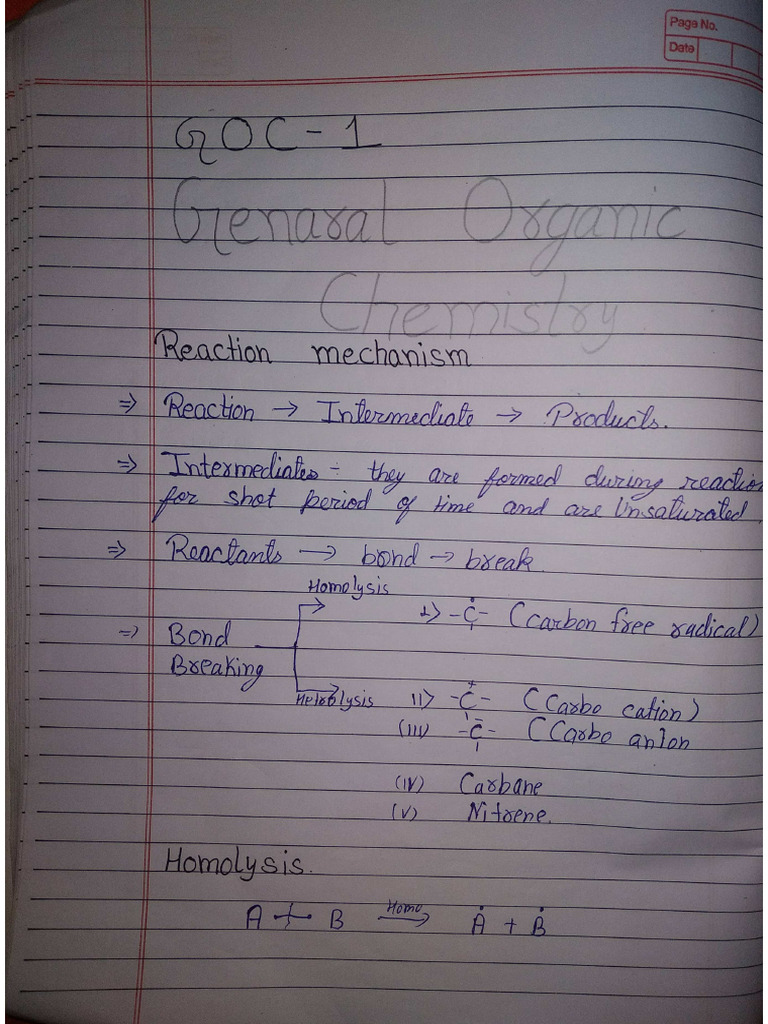 Page No.
Date
GOC-1
Genaral Organic
Chemistry
Reaction mechanism
⇒ Reaction → Intermediate → Products.
⇒ Intermediates ÷ they are formed during reaction
for shot period of time and are Unsaturated.
⇒ Reactants → bond → break
Homolysis
i> -Ċ- (carbon free radical)
⇒ Bond
Breaking
Hetrolysis ii> -C⁺- (Carbo cation)
(iii) -C⁻- (Carbo anion
(iv) Carbane
(v) Nitrene.
Homolysis.
A + B Homo → Ȧ + Ḃ